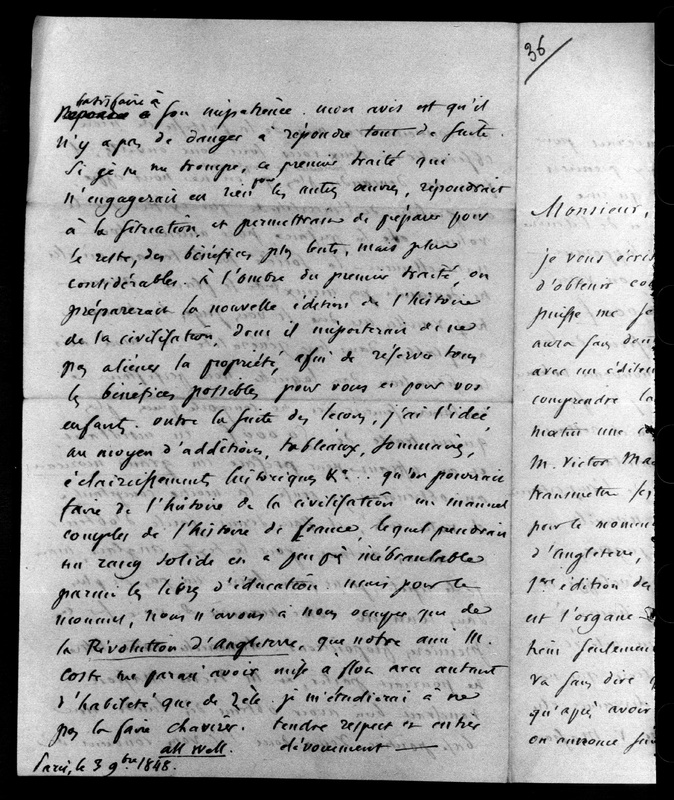 satisfaire à
son impatience. mon avis est qu'il
n'y a pas de danger à répondre tout de suite.
Si je ne me trompe, ce premier traité qui
n'engagerait en rien pour les autres œuvres, répondrait
à la situation et permettrait de préparer pour
le reste, des bénéfices plus lents, mais plus
considérables. à l'ombre du premier traité, on
préparerait la nouvelle édition de l'histoire
de la civilisation, dont il importerait de ne
pas aliéner la propriété, afin de réserver tous
les bénéfices possibles pour vous et pour vos
enfants. outre la suite des leçons, j'ai l'idée,
au moyen d'additions, tableaux, sommaires,
éclaircissements historiques &c... qu'on pourrait
faire de l'histoire de la civilisation un manuel
complet de l'histoire de france, lequel prendrait
un rang solide et à peu près inébranlable
parmi les livres d'éducation mais pour le
moment, nous n'avons à nous occuper que de
la Révolution d'Angleterre, que notre ami M.
Coste me parait avoir mise a flot avec autant
d'habileté que de zèle je m'étudierai à ne
pas la faire chavirer. tendre respect et entier
all well. dévouement
Paris, le 3 9bre 1848.
36
Monsieur,
je vous écris
d'obtenir
puisse me
aura sans
avec un
comprendre la
mettre une
M. Victor
transmettre
pour le moment
d'angleterre,
1ere édition des
est l'organe
hein seulement
va sans dire
qu'après avoir
on annonce